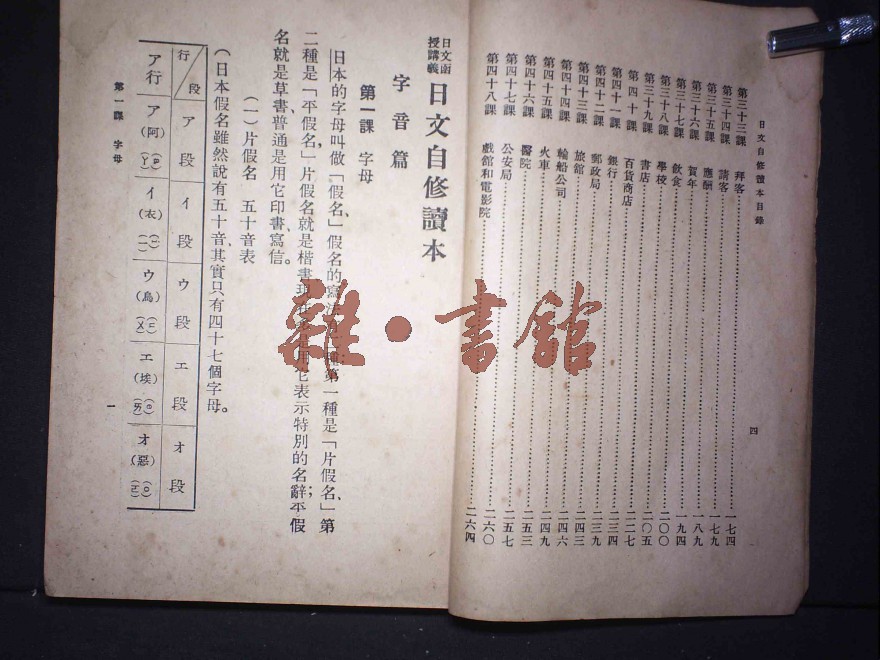 日文自修讀本目錄
第三十三課 拜客 一七四
第三十四課 請客 一七九
第三十五課 應酬 一八九
第三十六課 賀年 一九四
第三十七課 飲食 二〇〇
第三十八課 學校 二〇五
第三十九課 書店
第四十課 百貨商店 二二七
第四十一課 銀行 二三四
第四十二課 郵政局 二三九
第四十三課 旅館 二四三
第四十四課 輪船公司 二四六
第四十五課 火車 二四九
第四十六課 醫院 二五三
第四十七課 公安局 二五七
第四十八課 戲館和電影院 二六〇
二六四
四
日文函授講義 日文自修讀本
字音篇
第一課 字母
日本的字母叫做「假名、」假名的寫法 種第一種是「片假名、」第
二種是「平假名、」片假名就是楷書 用它表示特別的名辭;平假
名就是草書、普通是用它印書、寫信。
(一)片假名 五十音表
(日本假名雖然說有五十音、其實只有四十七個字母。
行 段 ア段 イ段 ウ段 エ段 オ段
ア行 ア(阿)(ㄚ) イ(衣)(ㄧ) ウ(烏)(ㄨ) エ(埃)(ㄞ) オ(惡)
第一課 字母
一
雜·書館